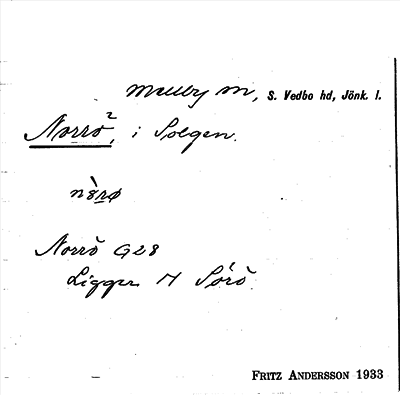 Mellby sn, S. Vedbo hd, Jönk. l.
Norrö², i Solgen.
nòrø
Norrö G28
Ligger N Sörö.
FRITZ ANDERSSON 1933